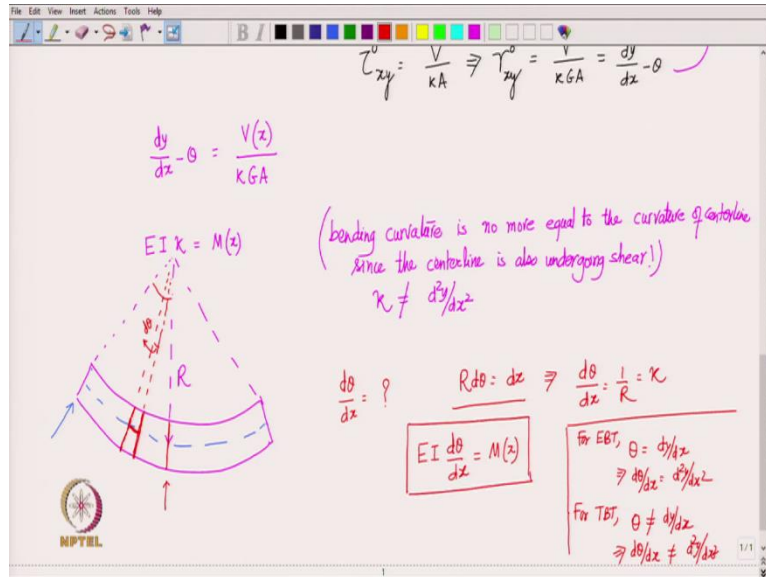 File Edit View Insert Actions Tools Help
B I
τ⁰xy = V/κA ⇒ γ⁰xy = V/κGA = dy/dx - θ
dy/dx - θ = V(x)/κGA
EIκ = M(x)
(bending curvature is no more equal to the curvature of centerline
since the centerline is also undergoing shear!)
κ ≠ d²y/dx²
dθ
R
dθ/dx = ?
Rdθ = dx ⇒ dθ/dx = 1/R = κ
EI dθ/dx = M(x)
For EBT, θ = dy/dx
⇒ dθ/dx = d²y/dx²
For TBT, θ ≠ dy/dx
⇒ dθ/dx ≠ d²y/dx²
NPTEL
1/1
1